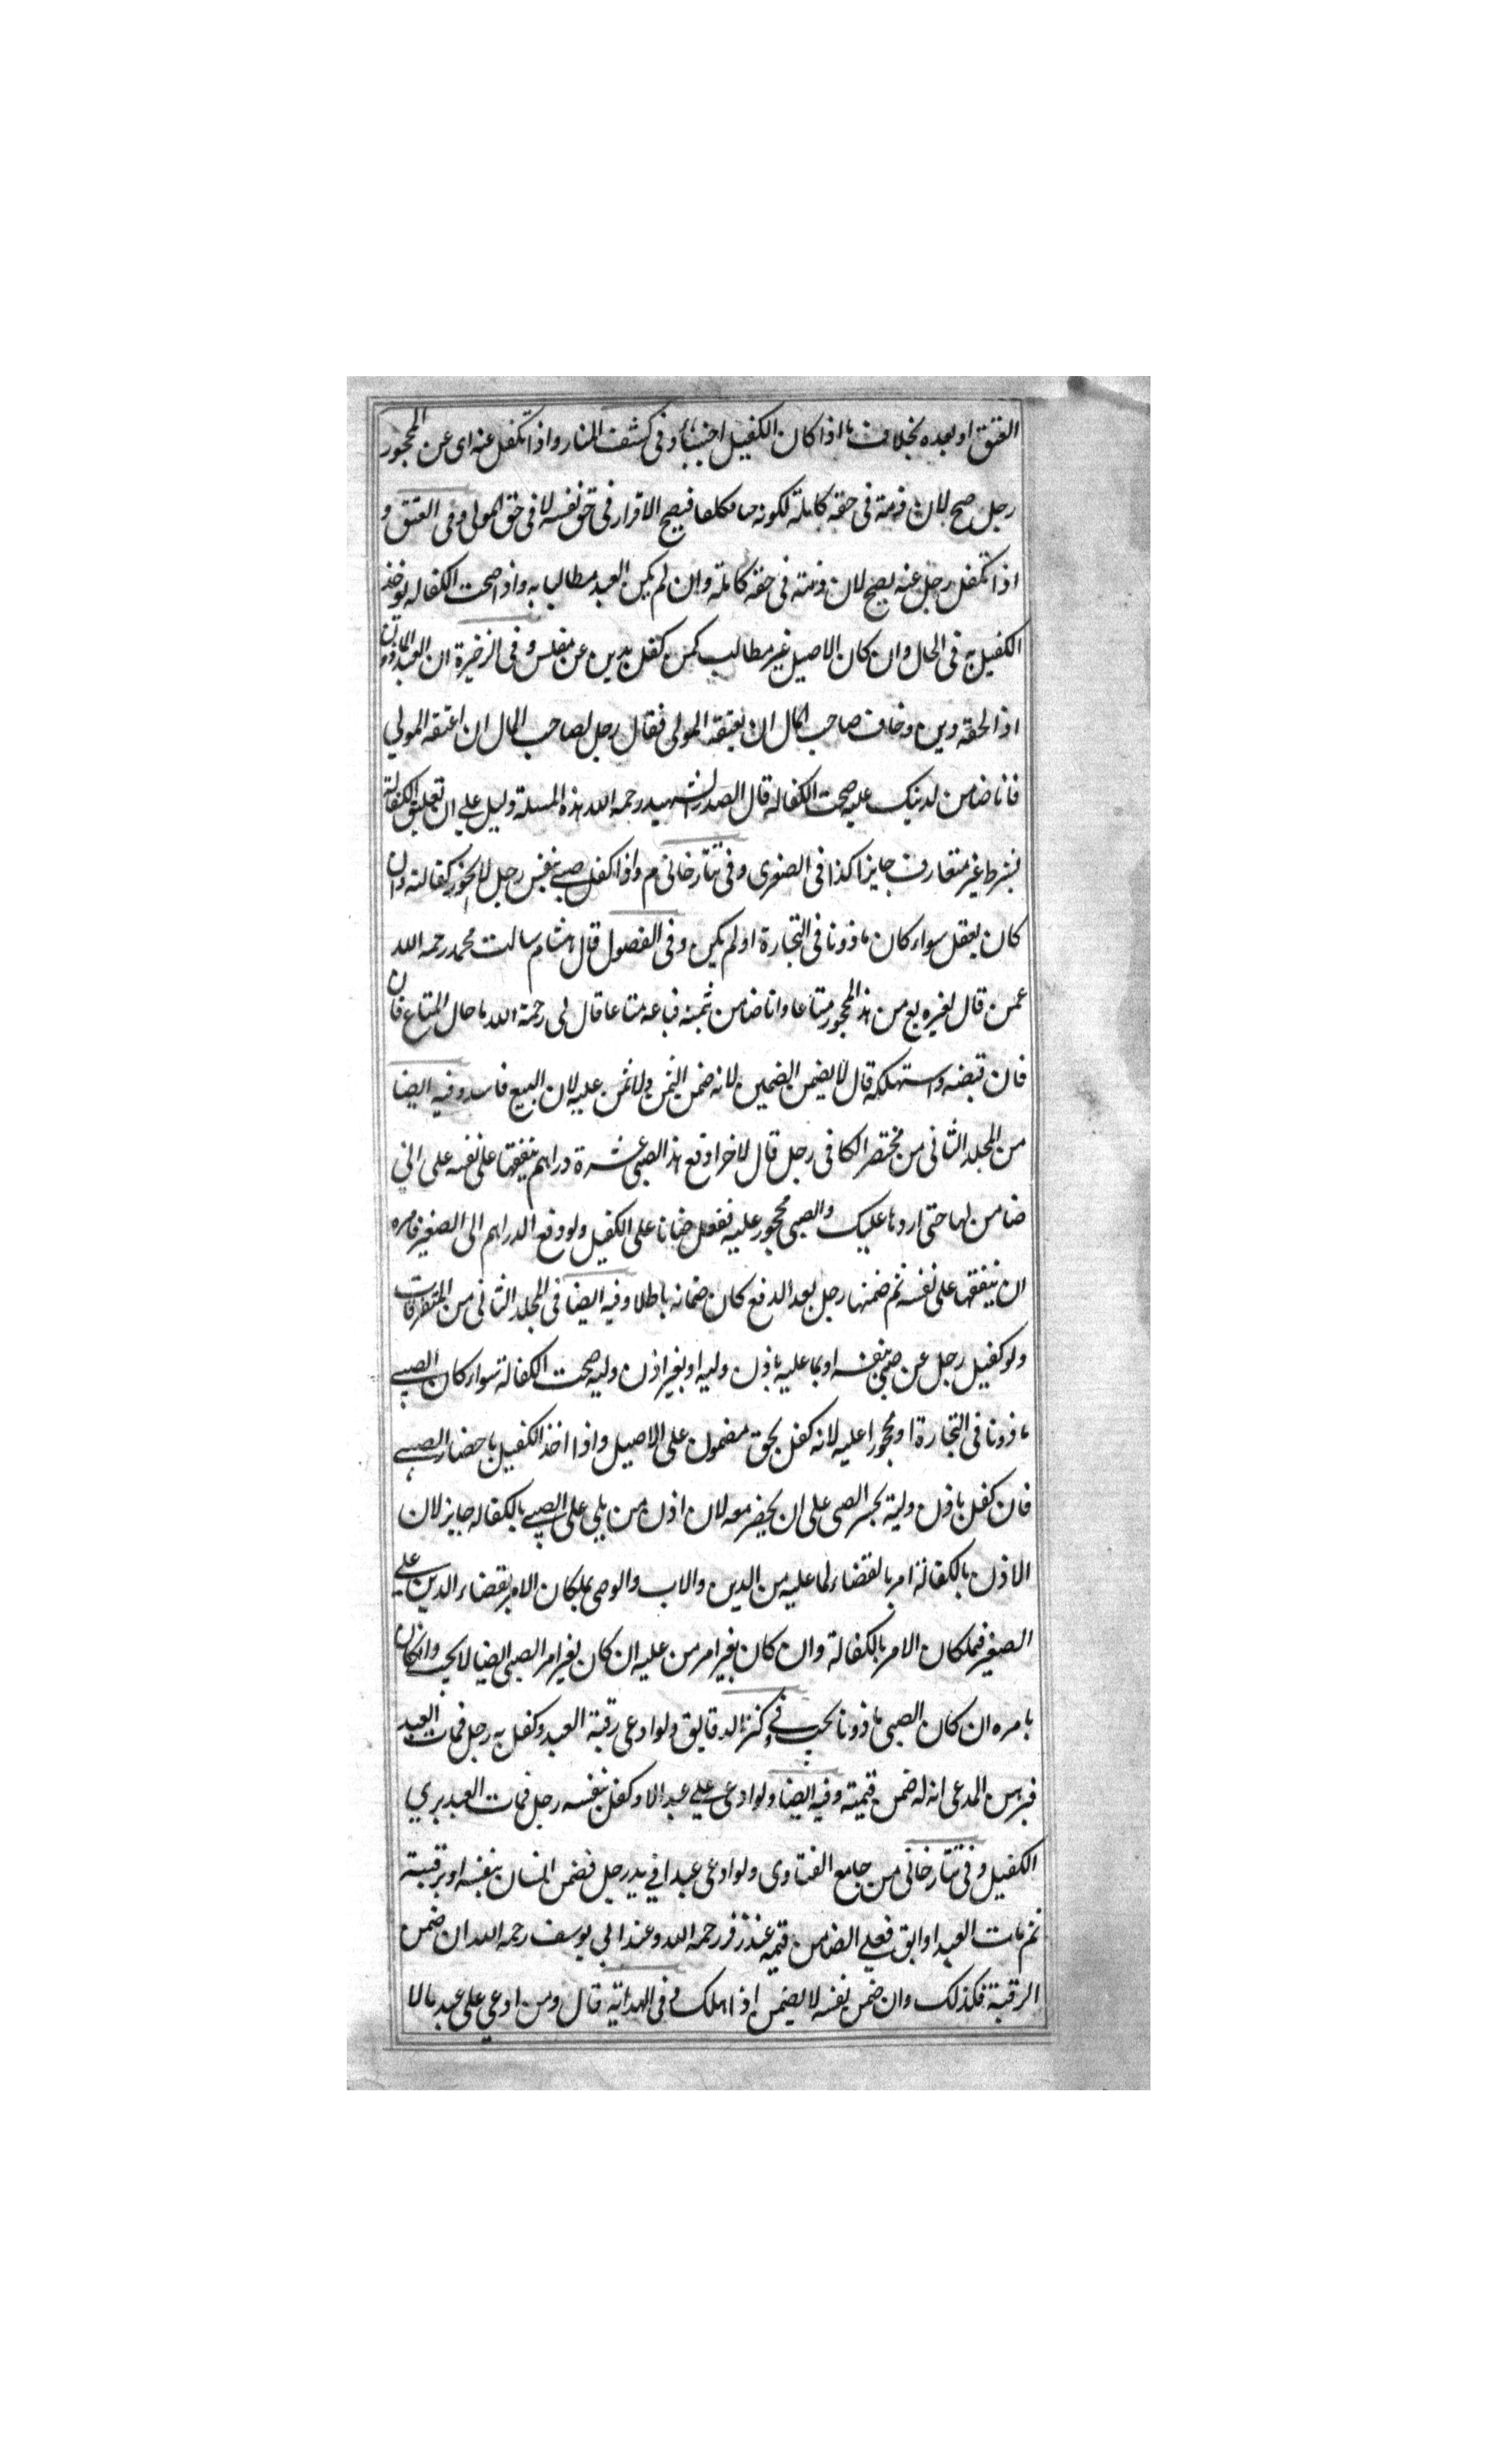 العتق او بعده بخلاف ما اذا كان الكفيل اجنبيا وفى كشف المنار واذا تكفل عنه اى عن المحجور
رجل صح لان ذمته فى حقه كاملة لكونه حيا مكلفا فيصح الاقرار فى حق نفسه لا فى حق المولى وفى العتق و
اذا تكفل رجل عنه يصح لان ذمته فى حقه كاملة وان لم يكن العبد مطالبا به واذا صحت الكفاله يوخذ
الكفيل به فى الحال وان كان الاصيل غير مطالب كمن كفل بدين عن مفلس وفى الذخيرة ان العبد الماذون
اذا لحقه دين وخاف صاحب المال ان يعتقه المولى فقال رجل لصاحب المال ان اعتقه المولي
فانا ضامن لدينك عليه صحت الكفاله قال الصدر الشهيد رحمه الله هذه المسلة دليل علي ان تعليق الكفالة
بشرط غير متعارف جايز كذا فى الصغرى وفى تتارخانى م واذا كفل صبي بنفس رجل لا يجوز كفالته وان
كان يعقل سواء كان ماذونا فى التجارة او لم يكن وفى الفصول قال هشام سالت محمد رحمه الله
عمن قال لغيره بع من هذا المحجور متاعا وانا ضامن ثمنه فباعه متاعا قال لى رحمة الله ما حال المتاع فان
فان قبضه واستهلكه قال لا يضمن الضمين لانه ضمن الثمن ولا ثمن عليه لان البيع فاسد وفيه ايضا
من المجلد الثانى من مختصر الكافى رجل قال لاخر ادفع هذا الصبى عشرة دراهم ينفقها على نفسه على انى
ضامن لها حتى اردها عليك والصبى محجور عليه ففعل ضمانا على الكفيل ولو دفع الدراهم الى الصغير فامره
ان ينفقها على نفسه ثم ضمنها رجل بعد الدفع كان ضمانه باطلا وفيه ايضا فى المجلد الثانى من المتفرقات
ولو كفيل رجل عن صبى بنفسه او بما عليه باذن وليه او بغير اذن وليه صحت الكفالة سواء كان الصبي
ماذونا فى التجارة او محجورا عليه لانه كفل بحق مضمون على الاصيل واذا اخذ الكفيل باحضار الصبي
فان كفل باذن وليه يجبر الصبى على ان يحضر معه لان اذن من يلي على الصبي بالكفاله جايز لان
الاذن بالكفالة امر بالقضاء لما عليه من الدين والاب والوصى يملكان الامر بقضاء الدين علي
الصغير فيملكان الامر بالكفالة وان كان بغير امر من عليه ان كان بغير امر الصبى ايضا لا يجب وان كان
بامره ان كان الصبى ماذونا يجب في كنز الدقايق ولو ادعى رقبة العبد وكفل به رجل فمات العبد
فبرهن المدعى انه له ضمن قيمته وفيه ايضا ولو ادعى علي عبد مالا وكفل بنفسه رجل فمات العبد بري
الكفيل وفى تتارخانى من جامع الفتاوى ولو ادعى عبدا في يد رجل فضمن انسان بنفسه او برقبته
ثم مات العبد او ابق فعلي الضامن قيمته عند زفر رحمه الله وعند ابي يوسف رحمه الله ان ضمن
الرقبة فكذلك وان ضمن نفسه لا يضمن اذا هلك وفى الهداية قال ومن ادعي على عبد مالا